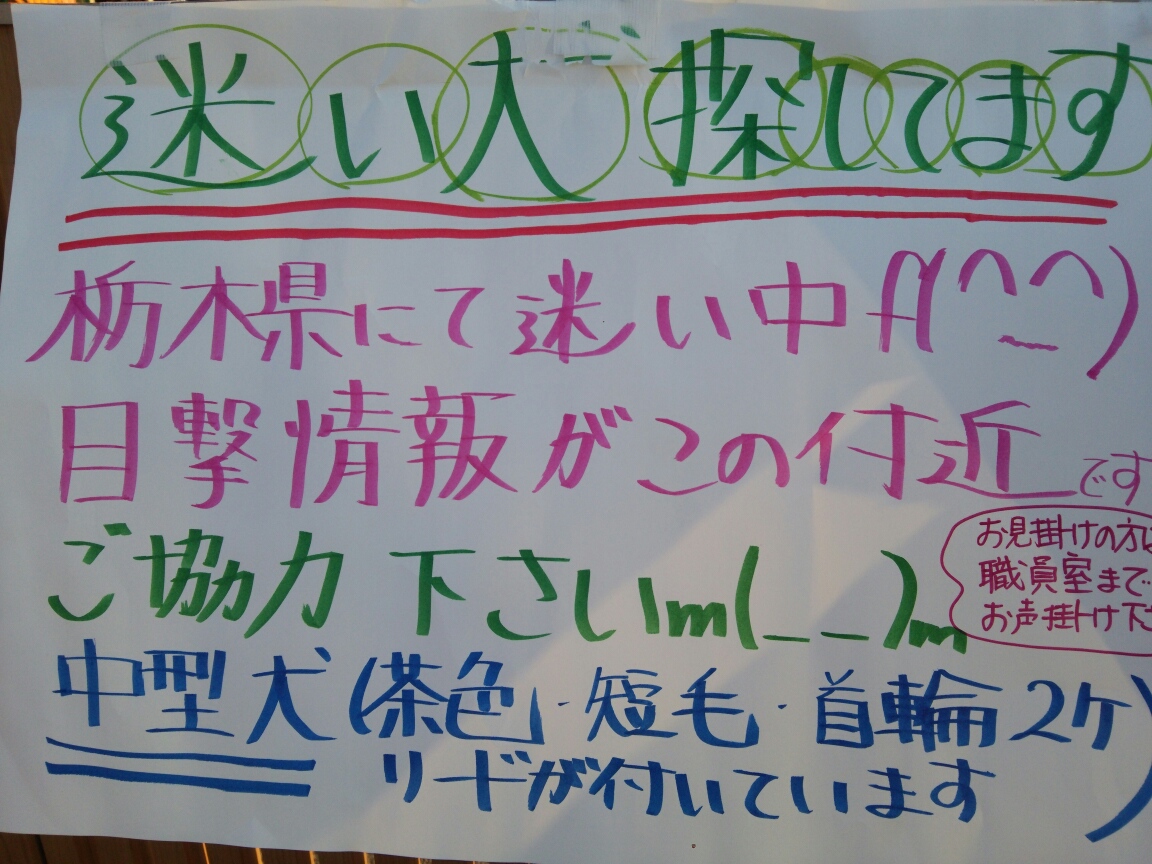 迷い犬探してます
栃木県にて迷い中f(^_^)
目撃情報がこの付近です
お見掛けの方は
職員室まで
お声掛け下さ
ご協力下さいm(_ _)m
中型犬(茶色・短毛・首輪2ケ
リードが付いています)